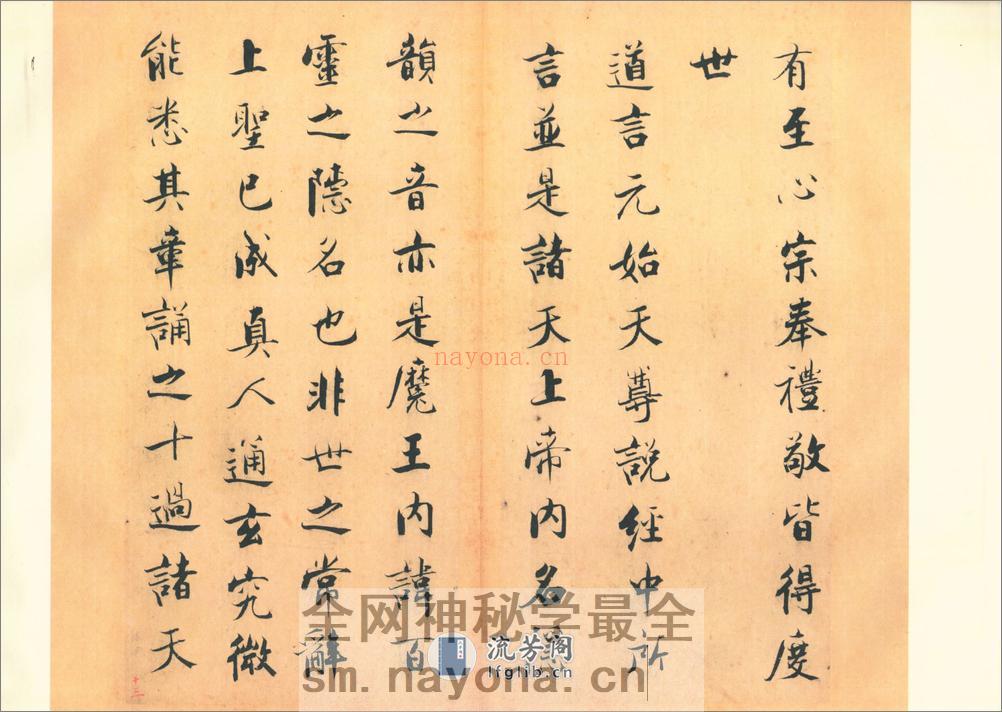 有至心宗奉禮敬皆得度
世
道言元始天尊説經中所
言並是諸天上帝内名隱
韻之音亦是魔王内諱百
靈之隱名也非世之常辭
上聖已成真人通玄究微
能悉其章誦之十過諸天
十三
nayona.cn
全网神秘学最全
流芳阁
lfglib.cn
sm.nayona.cn